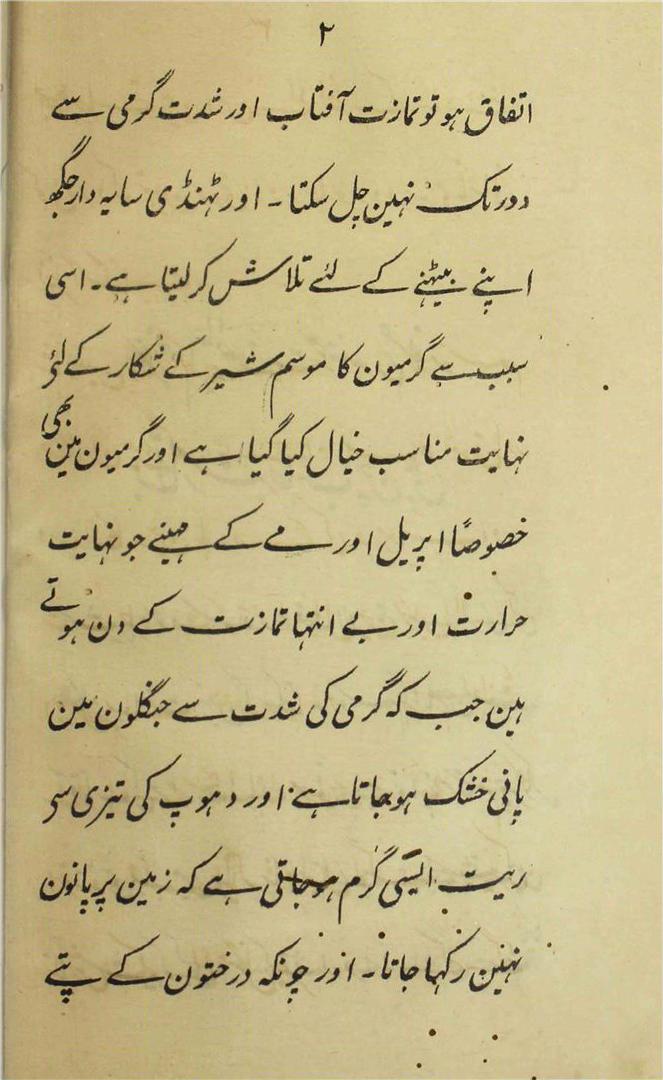 ۲
اتفاق ہو تو تمازت آفتاب اور شدت گرمی سے
دور تک نہین چل سکتا ۔ اور ٹہنڈی سایہ دار جگھ
اپنے بیٹہنے کے لئے تلاش کر لیتا ہے ۔ اسی
سبب سے گرمیون کا موسم شیر کے شکار کے لئی
نہایت مناسب خیال کیا گیا ہے اور گرمیون مین بھی
خصوصًا اپریل اور مے کے مہینے جو نہایت
حرارت اور بے انتہا تمازت کے دن ہوتے
ہین جب کہ گرمی کی شدت سے جنگلون مین
پانی خشک ہو جاتا ہے اور دہوپ کی تیزی سی
ریت ایسی گرم ہو جاتی ہے کہ زمین پر پانون
نہین رکہا جاتا ۔ اور چونکہ درختون کے پتے